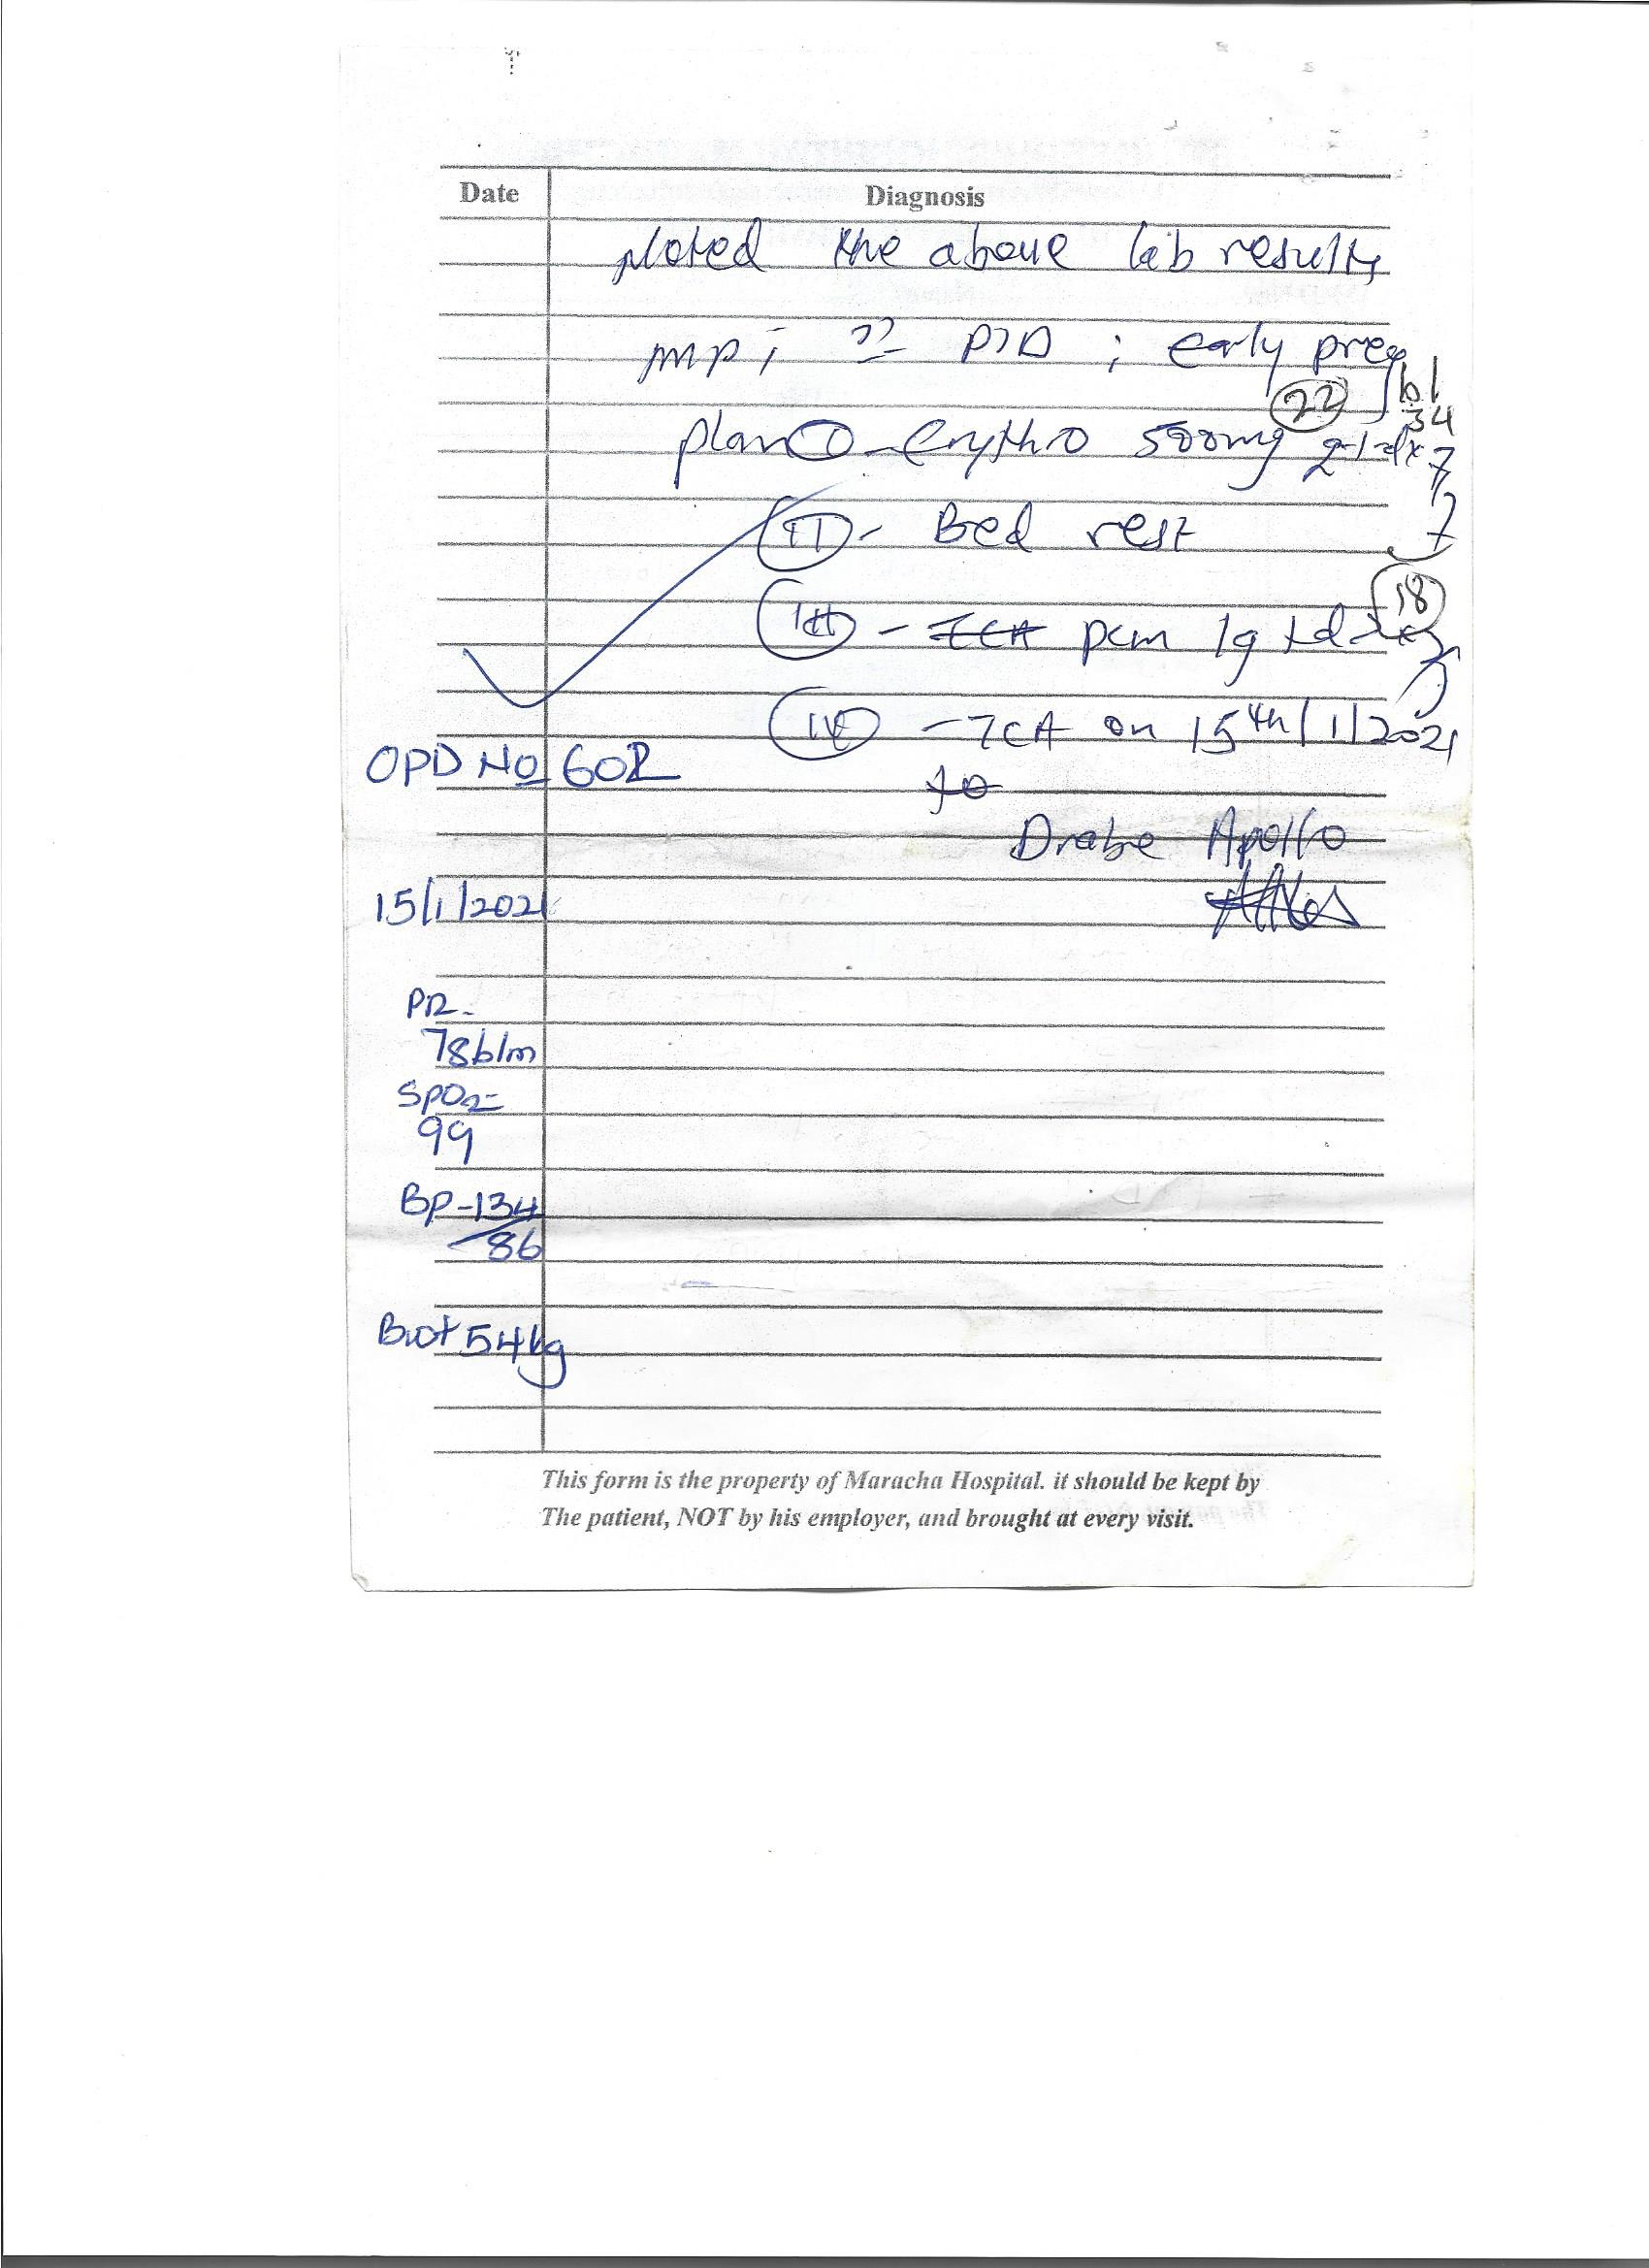 Date Diagnosis
Noted the above lab results
Imp; ?? PID ; early preg
22
34
plan I - Erythro 500mg
7
II - Bed rest
7
18
III - TCA pcm 1g tds x
IV - TCA on 15th/1/2021
OPD No 602
to
Drabe Apollo
15/1/2021
PR-
78b/m
SPO2=
99
BP-134
/86
Bwt 54kg
This form is the property of Maracha Hospital. it should be kept by
The patient, NOT by his employer, and brought at every visit.